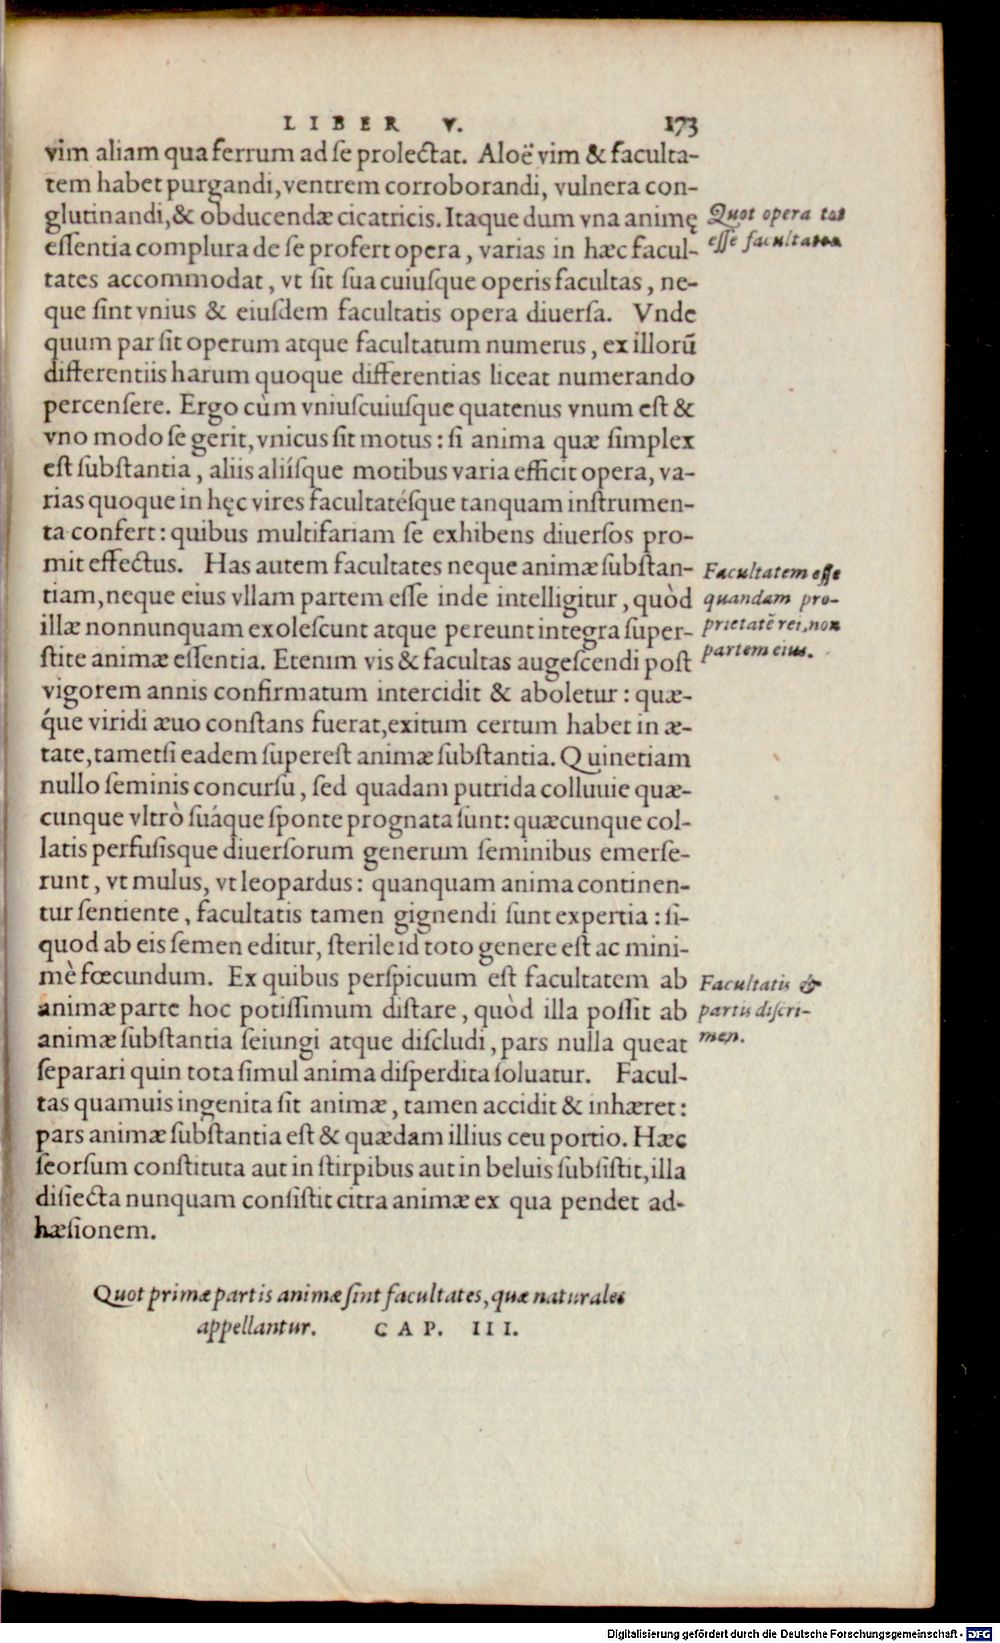 LIBER V. 173
vim aliam qua ferrum ad ſe prolectat. Aloë vim & faculta-
tem habet purgandi, ventrem corroborandi, vulnera con-
glutinandi, & obducendæ cicatricis. Itaque dum vna animę
eſſentia complura de ſe profert opera, varias in hæc facul-
tates accommodat, vt ſit ſua cuiuſque operis facultas, ne-
que ſint vnius & eiuſdem facultatis opera diuerſa. Vnde
quum par ſit operum atque facultatum numerus, ex illorū
differentiis harum quoque differentias liceat numerando
percenſere. Ergo cùm vniuſcuiuſque quatenus vnum eſt &
vno modo ſe gerit, vnicus ſit motus: ſi anima quæ ſimplex
eſt ſubſtantia, aliis aliíſque motibus varia efficit opera, va-
rias quoque in hęc vires facultatéſque tanquam inſtrumen-
ta confert: quibus multifariam ſe exhibens diuerſos pro-
mit effectus. Has autem facultates neque animæ ſubſtan-
tiam, neque eius vllam partem eſſe inde intelligitur, quòd
illæ nonnunquam exoleſcunt atque pereunt integra ſuper-
ſtite animæ eſſentia. Etenim vis & facultas augeſcendi poſt
vigorem annis confirmatum intercidit & aboletur: quæ-
q́ue viridi æuo conſtans fuerat, exitum certum habet in æ-
tate, tametſi eadem ſupereſt animæ ſubſtantia. Quinetiam
nullo ſeminis concurſu, ſed quadam putrida colluuie quæ-
cunque vltrò ſuáque ſponte prognata ſunt: quæcunque col-
latis perfuſisque diuerſorum generum ſeminibus emerſe-
runt, vt mulus, vt leopardus: quanquam anima continen-
tur ſentiente, facultatis tamen gignendi ſunt expertia: ſi-
quod ab eis ſemen editur, ſterile id toto genere eſt ac mini-
mè fœcundum. Ex quibus perſpicuum eſt facultatem ab
animæ parte hoc potiſſimum diſtare, quòd illa poſſit ab
animæ ſubſtantia ſeiungi atque diſcludi, pars nulla queat
ſeparari quin tota ſimul anima diſperdita ſoluatur. Facul-
tas quamuis ingenita ſit animæ, tamen accidit & inhæret:
pars animæ ſubſtantia eſt & quædam illius ceu portio. Hæc
ſeorſum conſtituta aut in ſtirpibus aut in beluis ſubſiſtit, illa
diſiecta nunquam conſiſtit citra animæ ex qua pendet ad-
hæſionem.
Quot opera tot
eſſe facultates
Facultatem eſſe
quandam pro-
prietatē rei, non
partem eius.
Facultatis &
partis diſcri-
men.
Quot primæ partis animæ ſint facultates, quæ naturales
appellantur. CAP. III.
Digitalisierung gefördert durch die Deutsche Forschungsgemeinschaft - DFG